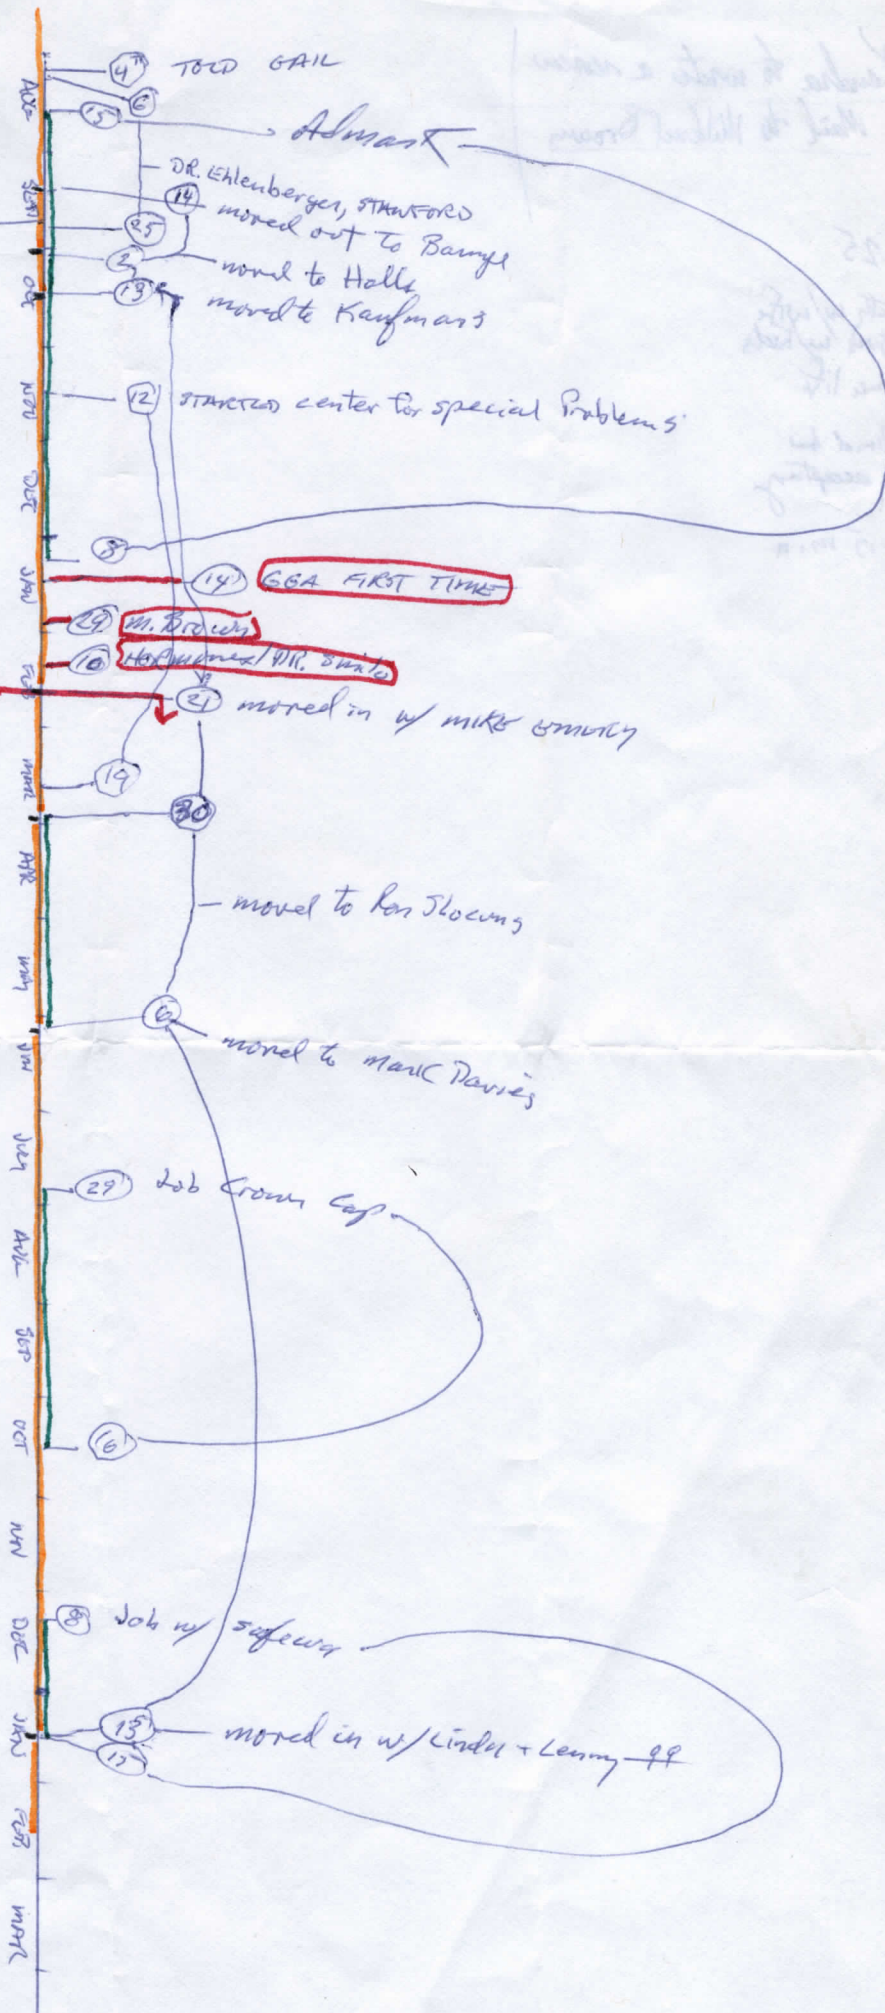 4 TOLD GAIL
6
AUG
15 Admark
DR. Ehlenberger, STANFORD
14
moved out to
25
2 moved to Halls
OCT
13 moved to Kaufmans
NOV
12 STARTED center for special Problems
DEC
8
JAN
14 GGA FIRST TIME
29 M. Brown
10 HORMONES/DR. Smith
FEB
21 moved in w/ MIKE EMORY
MAR
19
30
APR
moved to Ron
MAY
6
moved to Mark Davies
JUN
JULY
29 Job Crown
AUG
SEP
OCT
16
NOV
DEC
8 Job w/
JAN
13 moved in w/ Linda + Lenny
15
FEB
MAR